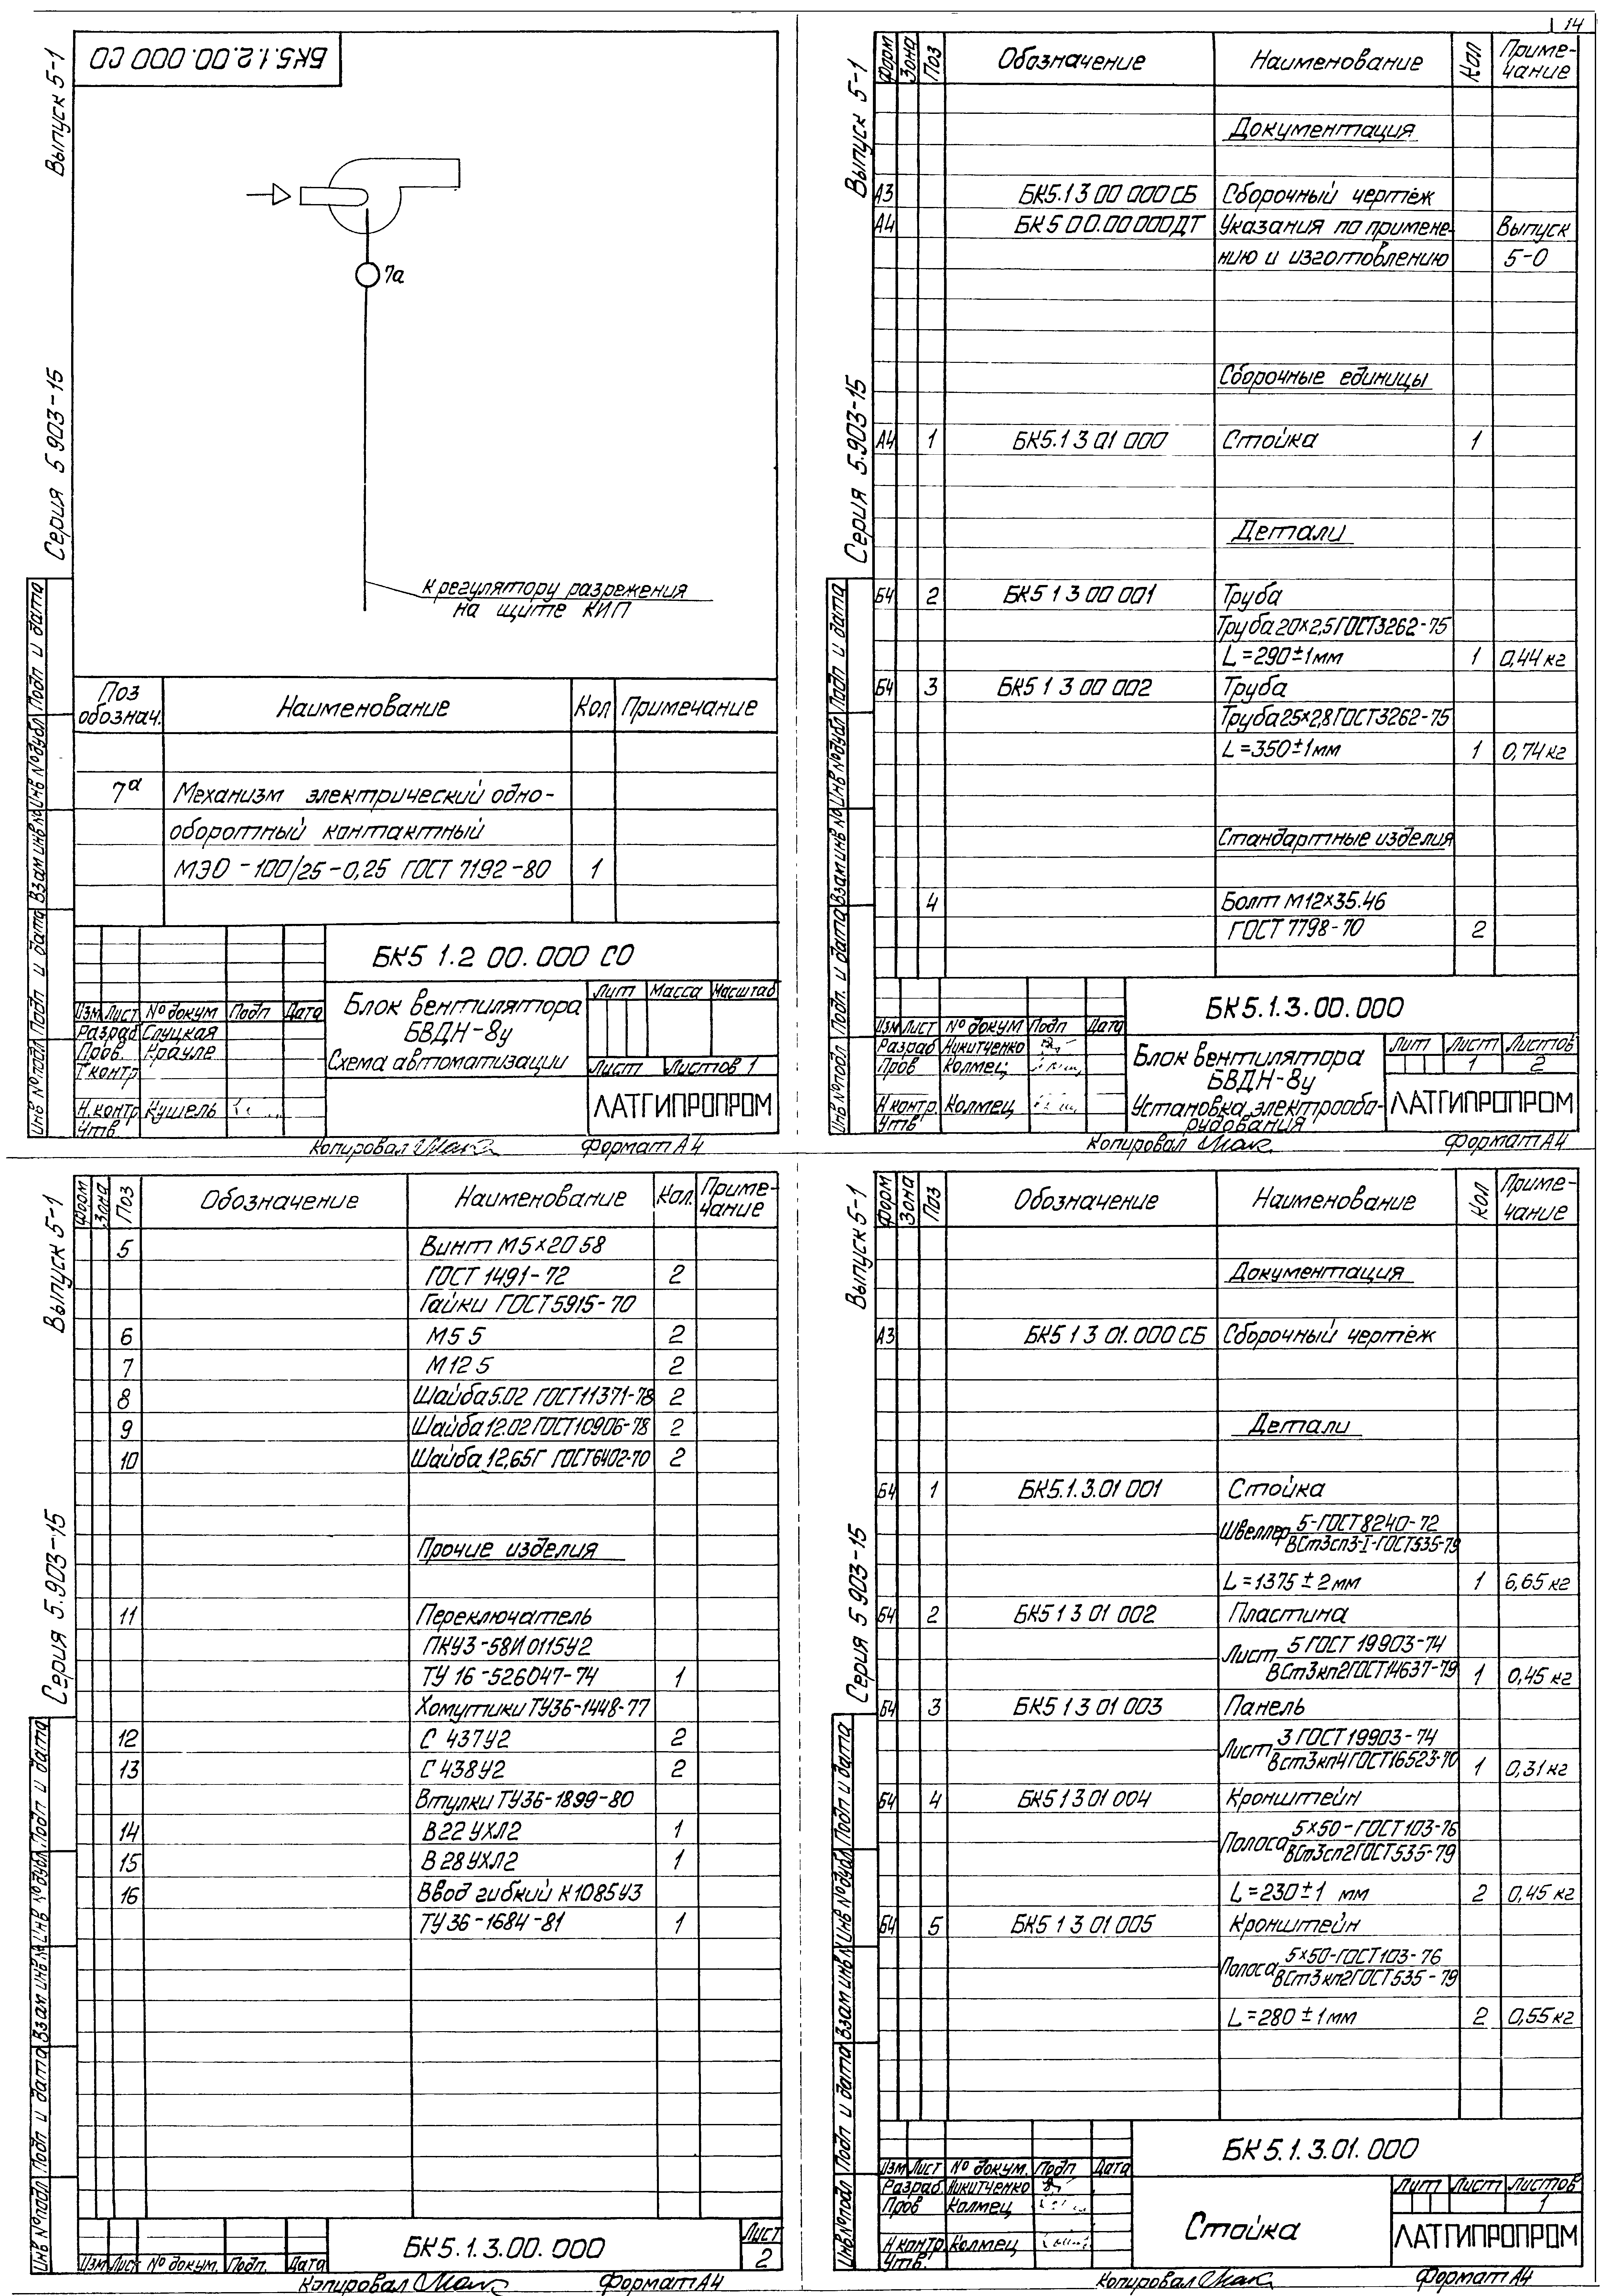 14
БК5.1.2.00.000 СО
Выпуск 5-1
Серия 5.903-15
7а
к регулятору разрежения
на щите КИП
Поз обознач. Наименование Кол Примечание
7а Механизм электрический одно-
оборотный контактный
МЭО-100/25-0,25 ГОСТ 7192-80 1
БК5 1.2 00.000 СО
Изм Лист № докум Подп Дата
Разраб Слуцкая
Пров. Крауле
Т контр
Н.контр Кушель
Утв
Блок вентилятора
БВДН-8у
Схема автоматизации
Лит Масса Масштаб
Лист Листов 1
ЛАТГИПРОПРОМ
Инв № подл Подп и дата Взам инв № Инв № дубл Подп и дата
Копировал Формат А4
Выпуск 5-1
Серия 5.903-15
Форм Зона Поз Обозначение Наименование Кол Приме-
чание
Документация
А3 БК5.1 3 00 000 СБ Сборочный чертёж
А4 БК 5 00.00 000 ДТ Указания по примене- Выпуск
нию и изготовлению 5-0
Сборочные единицы
А4 1 БК5.1 3 01 000 Стойка 1
Детали
Б4 2 БК5 1 3 00 001 Труба
Труба 20×2,5 ГОСТ 3262-75
L=290±1мм 1 0,44 кг
Б4 3 БК5 1 3 00 002 Труба
Труба 25×2,8 ГОСТ 3262-75
L=350±1мм 1 0,74 кг
Стандартные изделия
4 Болт М12×35.46
ГОСТ 7798-70 2
БК5.1.3.00.000
Изм Лист № докум Подп Дата
Разраб Никитченко
Пров Колмец
Н контр. Колмец
Утв
Блок вентилятора
БВДН-8у
Установка электрообо-
рудования
Лит Лист Листов
1 2
ЛАТГИПРОПРОМ
Инв № подл Подп. и дата Взам инв № Инв № дубл Подп и дата
Копировал Формат А4
Выпуск 5-1
Серия 5.903-15
Форм Зона Поз Обозначение Наименование Кол. Приме-
чание
5 Винт М5×20 58
ГОСТ 1491-72 2
Гайки ГОСТ 5915-70
6 М5 5 2
7 М12 5 2
8 Шайба 5.02 ГОСТ 11371-78 2
9 Шайба 12.02 ГОСТ 10906-78 2
10 Шайба 12,65Г ГОСТ 6402-70 2
Прочие изделия
11 Переключатель
ПКУ3-58И 0115У2
ТУ 16-526047-74 1
Хомутики ТУ36-1448-77
12 С 437У2 2
13 С 438У2 2
Втулки ТУ36-1899-80
14 В22 УХЛ2 1
15 В 28 УХЛ2 1
16 Ввод гибкий К1085У3
ТУ 36-1684-81 1
Изм Лист № докум. Подп. Дата
БК5.1.3.00.000
Лист
2
Инв № подл Подп и дата Взам инв № Инв № дубл. Подп и дата
Копировал Формат А4
Выпуск 5-1
Серия 5 903-15
Форм Зона Поз Обозначение Наименование Кол Приме-
чание
Документация
А3 БК5 1 3 01.000 СБ Сборочный чертёж
Детали
Б4 1 БК5.1.3.01 001 Стойка
Швеллер 5-ГОСТ 8240-72
ВСт3сп3-I-ГОСТ 535-79
L=1375±2мм 1 6,65 кг
Б4 2 БК5 1 3 01 002 Пластина
Лист 5 ГОСТ 19903-74
ВСт3кп2 ГОСТ 14637-79 1 0,45 кг
Б4 3 БК5 1 3 01 003 Панель
Лист 3 ГОСТ 19903-74
ВСт3кп4 ГОСТ 16523-70 1 0,31 кг
Б4 4 БК5 1 3 01 004 Кронштейн
Полоса 5×50-ГОСТ 103-76
ВСт3сп2 ГОСТ 535-79
L=230±1 мм 2 0,45 кг
Б4 5 БК5 1 3 01 005 Кронштейн
Полоса 5×50-ГОСТ 103-76
ВСт3кп2 ГОСТ 535-79
L=280±1мм 2 0,55 кг
БК 5.1.3.01.000
Изм Лист № докум. Подп Дата
Разраб. Никитченко
Пров Колмец
Н контр Колмец
Утв.
Стойка
Лит Лист Листов
1
ЛАТГИПРОПРОМ
Инв № подл Подп и дата Взам инв № Инв № дубл Подп и дата
Копировал Формат А4